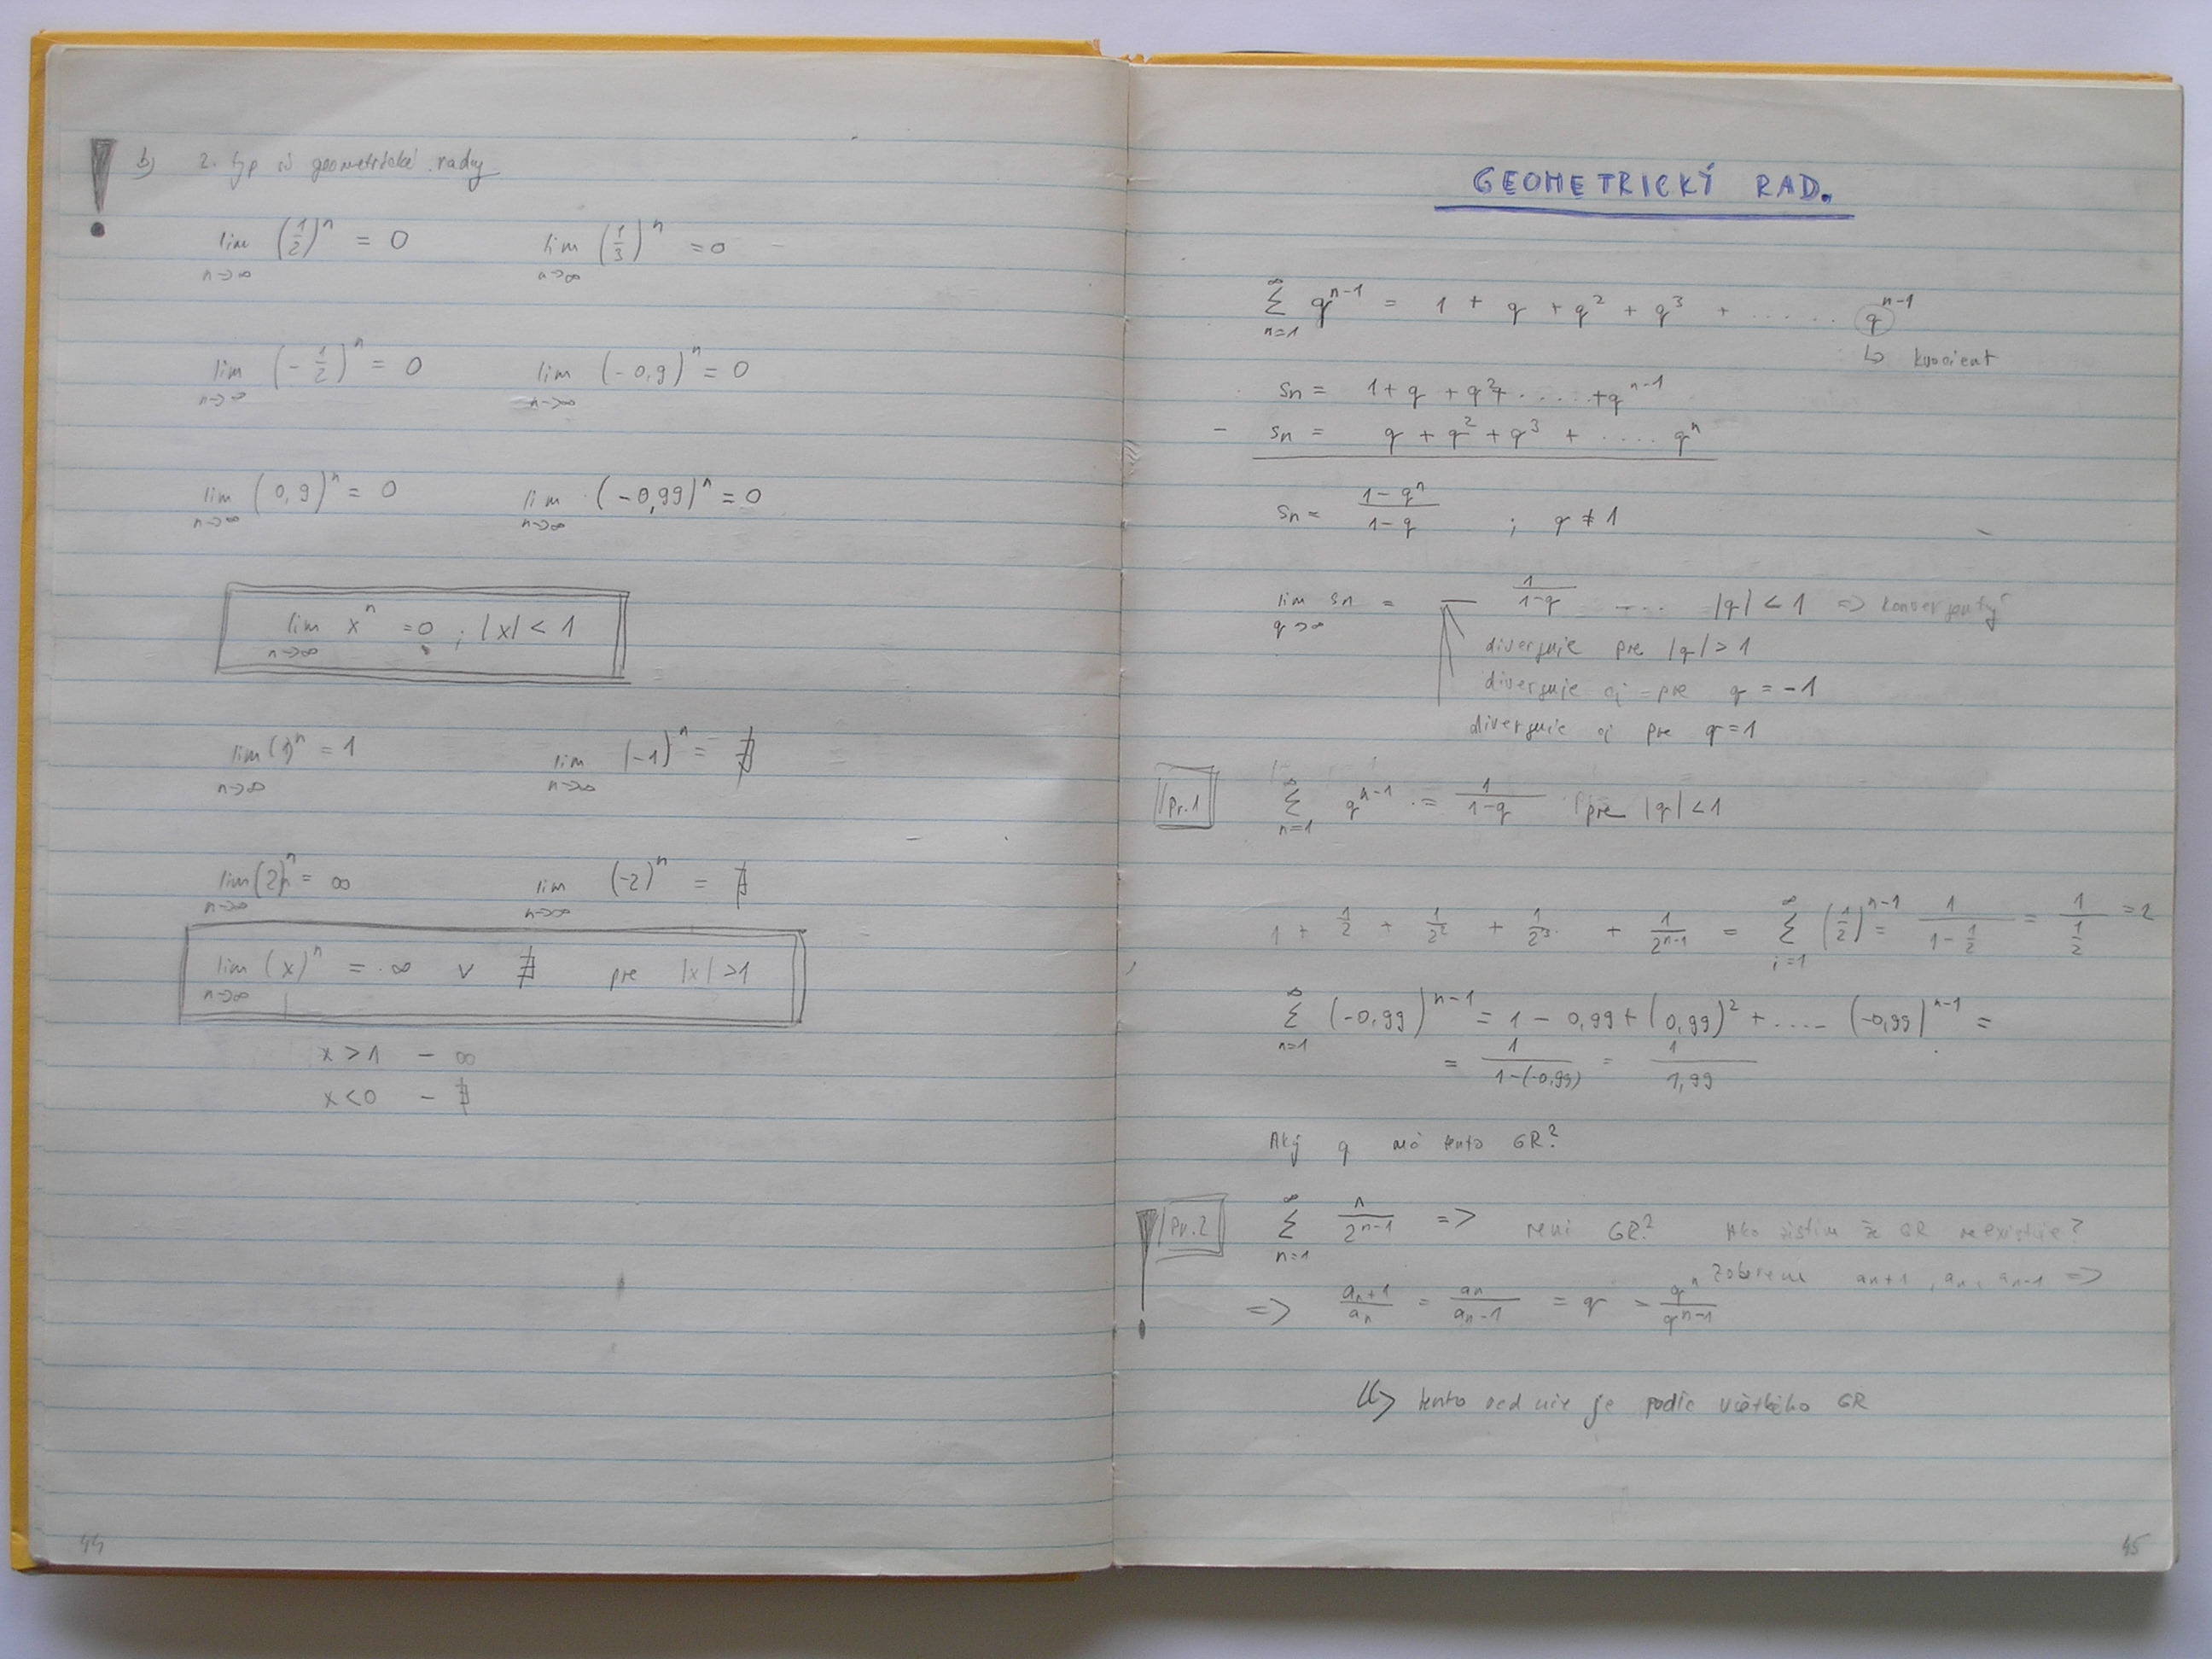 b) 2. typ sú geometrické rady
lim n→∞ (1/2)^n = 0    lim n→∞ (1/3)^n = 0
lim n→∞ (-1/2)^n = 0    lim n→∞ (-0,9)^n = 0
lim n→∞ (0,9)^n = 0    lim n→∞ (-0,99)^n = 0
lim n→∞ x^n = 0 ; |x| < 1
lim n→∞ (1)^n = 1    lim n→∞ (-1)^n = ∄
lim n→∞ (2)^n = ∞    lim n→∞ (-2)^n = ∄
lim n→∞ (x)^n = ∞ v ∄ pre |x| > 1
x > 1 - ∞
x < 0 - ∄
44
GEOMETRICKÝ RAD.
∞ Σ n=1 q^(n-1) = 1 + q + q^2 + q^3 + ...... q^(n-1)
↳ kvocient
sn = 1 + q + q^2 + ..... + q^(n-1)
- sn = q + q^2 + q^3 + .... q^n
sn = (1-q^n)/(1-q) ; q ≠ 1
lim q→∞ sn = 1/(1-q) .... |q| < 1 => konvergentný
diverguje pre |q| > 1
diverguje aj pre q = -1
diverguje aj pre q = 1
Pr.1 ∞ Σ n=1 q^(n-1) = 1/(1-q) pre |q| < 1
1 + 1/2 + 1/2^2 + 1/2^3 + 1/2^(n-1) = ∞ Σ i=1 (1/2)^(n-1) = 1/(1-1/2) = 1/(1/2) = 2
∞ Σ n=1 (-0,99)^(n-1) = 1 - 0,99 + (0,99)^2 + .... (-0,99)^(n-1) =
= 1/(1-(-0,99)) = 1/1,99
Aký q má tento GR?
Pr.2 ∞ Σ n=1 n/2^(n-1) => není GR? Ako zistím že GR neexistuje?
Zoberieme an+1, an, an-1 =>
=> an+1/an = an/an-1 = q = q^n/q^(n-1)
tento rad nie je podľa všetkého GR
45